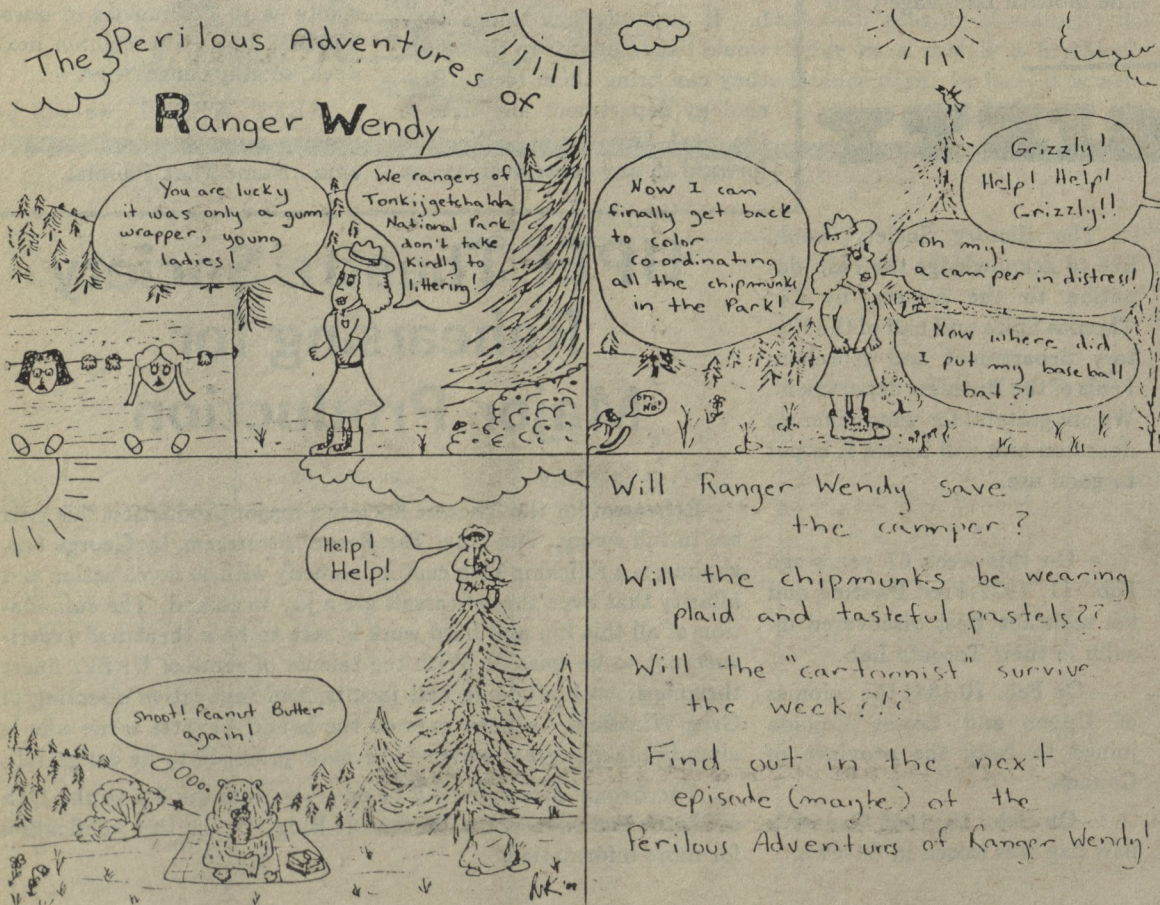 The Perilous Adventures of
Ranger Wendy
You are lucky
it was only a gum
wrapper, young
ladies!
We rangers of
National Park
don't take
kindly to
littering!
Now I can
finally get back
to color
co-ordinating
all the chipmunks
in the Park!
Grizzly!
Help! Help!
Grizzly!!
Oh my!
a camper in distress!
Now where did
I put my baseball
bat?!
Oh
No!
Help!
Help!
Shoot! Peanut Butter
again!
Will Ranger Wendy save
the camper?
Will the chipmunks be wearing
plaid and tasteful pastels??
Will the "cartoonist" survive
the week?!?
Find out in the next
episode (maybe) of the
Perilous Adventures of Ranger Wendy!